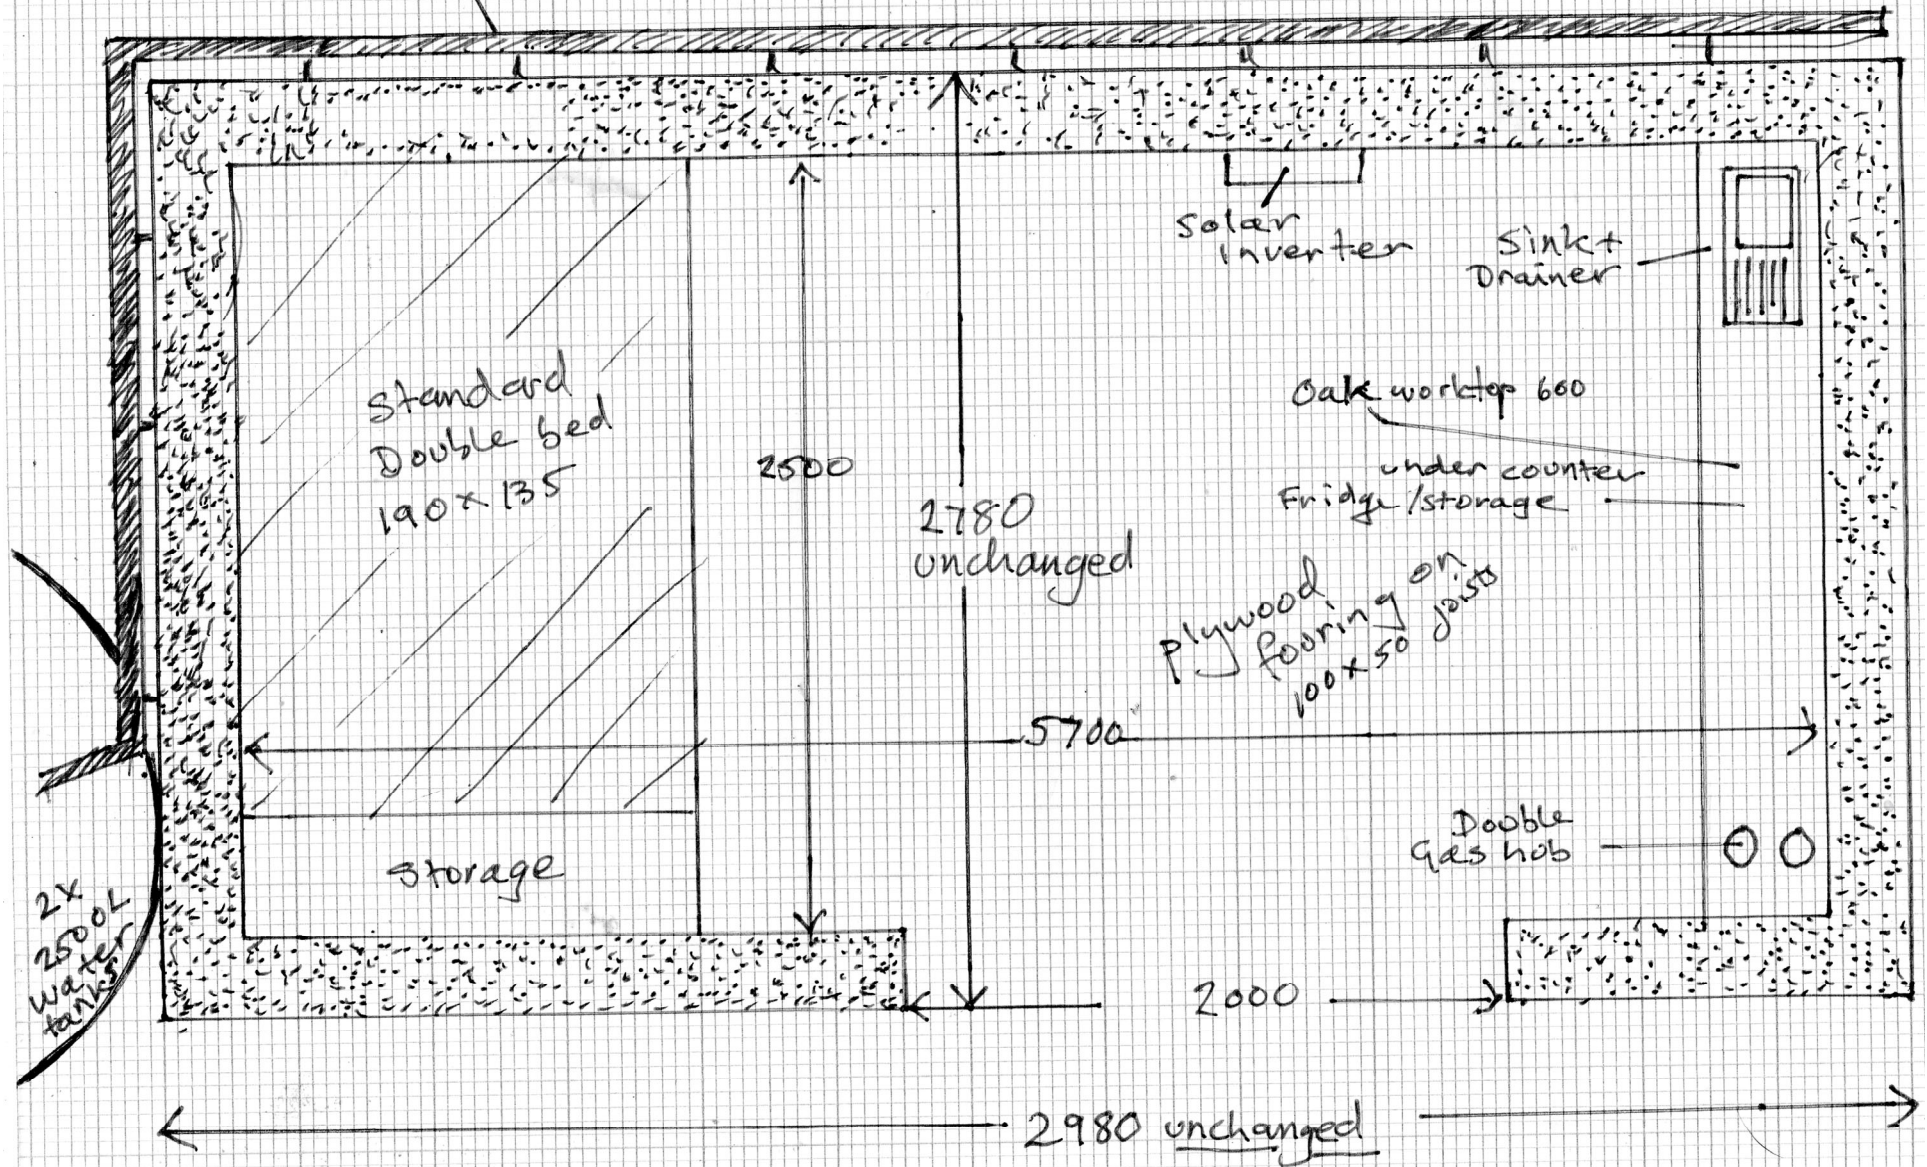 Solar
inverter
Sink +
Drainer
Standard
Double bed
190 x 135
Oak worktop 600
under counter
Fridge/storage
2500
2780
unchanged
plywood
fooring on
100 x 50 joists
5700
Double
Gas hob
Storage
2x
2500L
water
tanks
2000
2980 unchanged